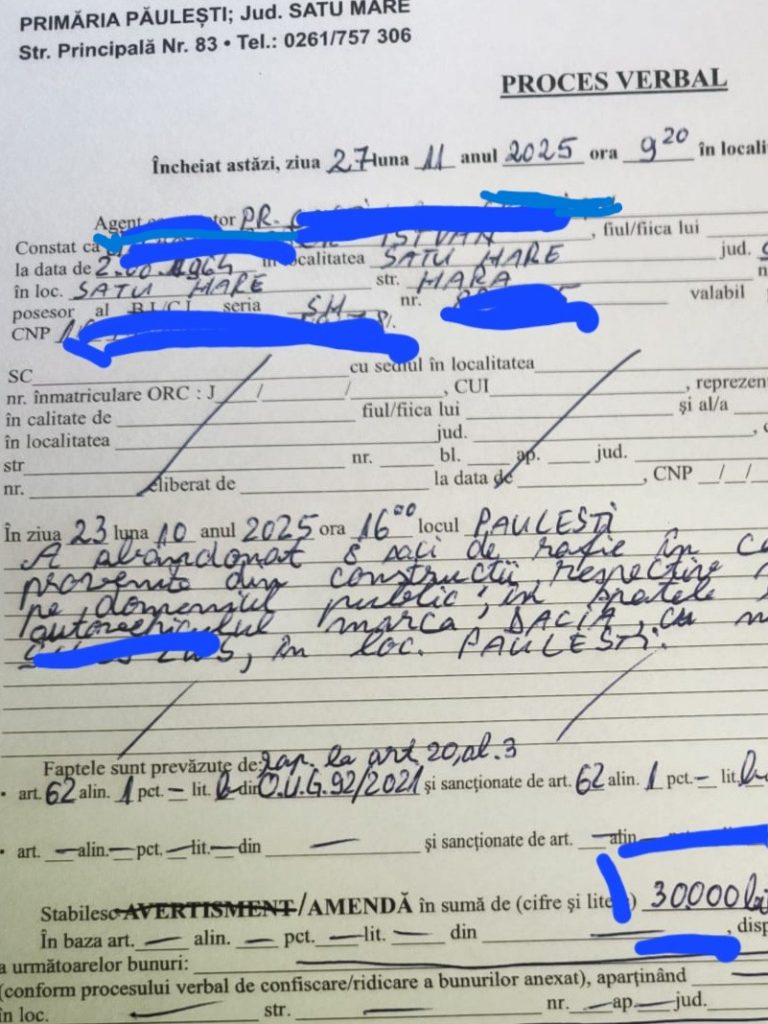 PRIMĂRIA PĂULEȘTI; Jud. SATU MARE
Str. Principală Nr. 83 • Tel.: 0261/757 306
PROCES VERBAL
Încheiat astăzi, ziua 27 luna 11 anul 2025 ora 9²⁰ în locali
Agent tor PR.
Constat că ISTVAN, fiul/fiica lui
la data de 1964 în localitatea SATU MARE jud.
în loc. SATU MARE str. MARA
posesor al B.I./C.I. seria SM nr. valabil
CNP 1
SC cu sediul în localitatea
nr. înmatriculare ORC : J / / , CUI , reprezen
în calitate de fiul/fiica lui și al/a
în localitatea jud. ,
str nr. bl. ap. jud.
nr. eliberat de la data de , CNP / /
În ziua 23 luna 10 anul 2025 ora 16⁰⁰ locul PAULESTI
A abandonat 8 saci de rafie în ca
provenite din constructii, respective
pe domeniul public, în spatele
autovehiculul marca DACIA, cu
, în loc. PAULESTI.
Faptele sunt prevăzute de: rap. la art 20, al. 3
• art. 62 alin. 1 pct. – lit. b din O.U.G. 92/2021 și sancționate de art. 62 alin. 1 pct. – lit. b
• art. — alin. — pct. — lit. — din — și sancționate de art. — alin.
Stabilesc AVERTISMENT/AMENDĂ în sumă de (cifre și lite ) 30000 lei
În baza art. — alin. — pct. — lit. — din — , disp
a următoarelor bunuri:
(conform procesului verbal de confiscare/ridicare a bunurilor anexat), aparținând
în loc. — str. — nr. — ap. — jud.